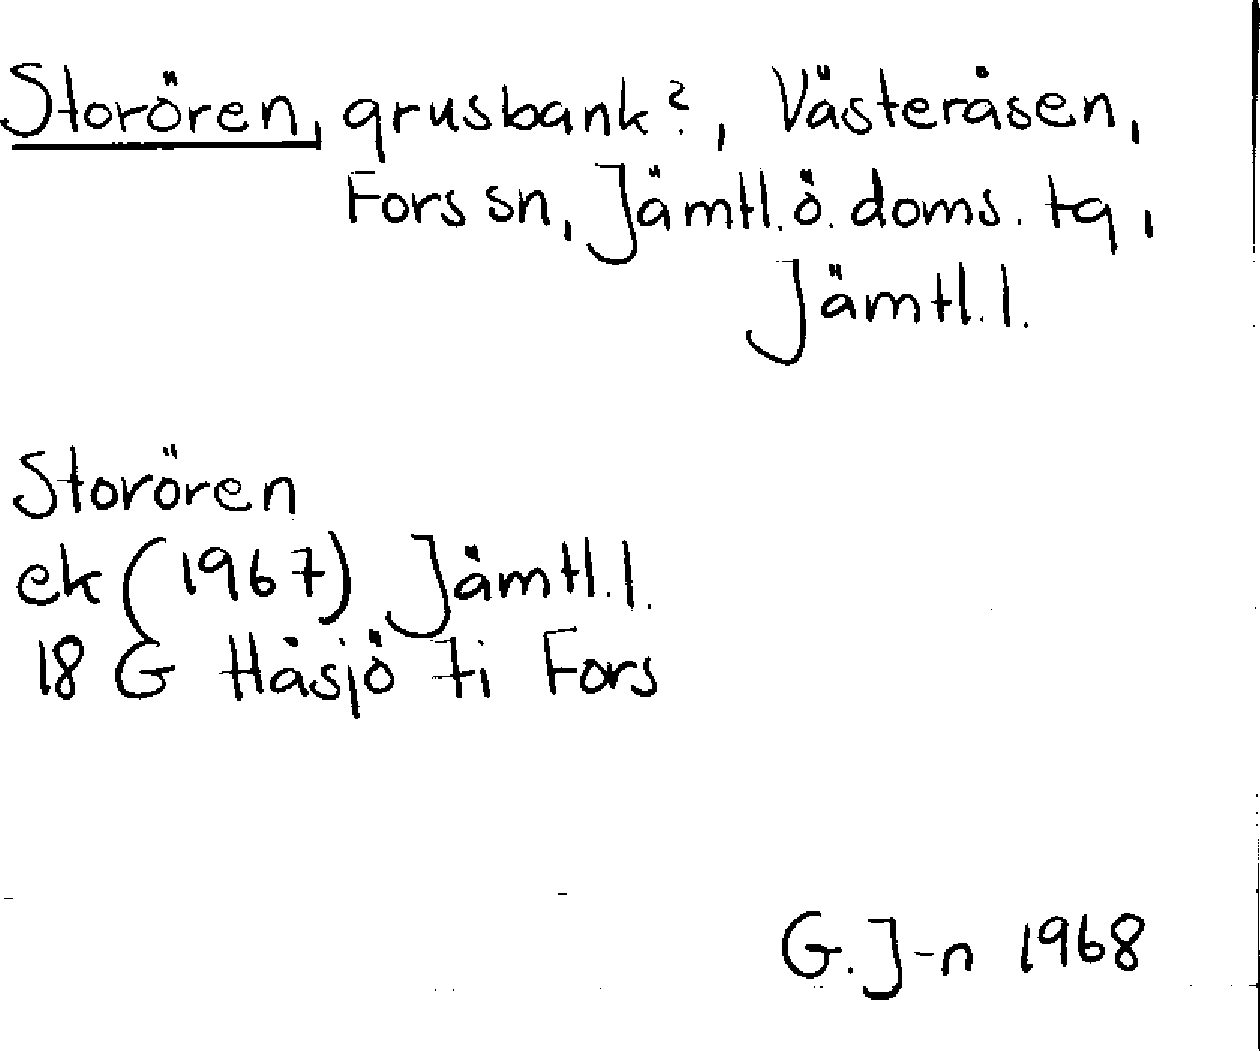 Storören, grusbank?, Västeråsen,
Fors sn, Jämtl. ö. doms. tg,
Jämtl. l.
Storören
ek (1967) Jämtl. l.
18 G Håsjö ti Fors
G. J-n 1968